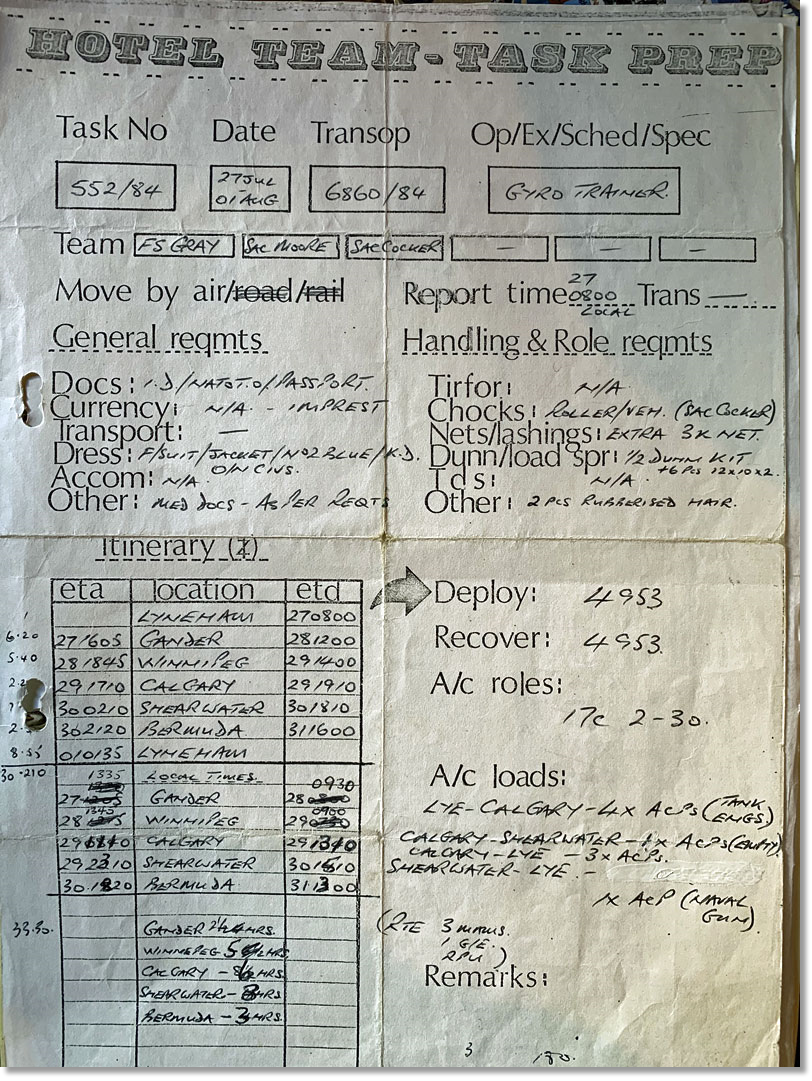 HOTEL TEAM-TASK PREP
Task No Date Transop Op/Ex/Sched/Spec
552/84 27 JUL - 01 AUG 6860/84 GYRO TRAINER.
Team FS GRAY SAC MOORE SAC COCKER — — —
Move by air/road/rail Report time 27 0800 LOCAL Trans —
General reqmts Handling & Role reqmts
Docs: I.D/NATO T.O/PASSPORT. Tirfor: N/A
Currency: N/A - IMPREST Chocks: ROLLER/VEH. (SAC COCKER)
Transport: — Nets/lashings: EXTRA 3K NET.
Dress: F/SUIT/JACKET/No2 BLUE/K.D. O/N CIVS. Dunn/load spr: 1/2 DUNN KIT +6 PCS 12x10x2.
Accom: N/A Tds: N/A.
Other: MED DOCS - AS PER REQTS Other: 2 PCS RUBBERISED HAIR.
Itinerary (z)
eta location etd
LYNEHAM 270800
6.20 271605 GANDER 281200
5.40 281845 WINNIPEG 291400
291710 CALGARY 291910
300210 SHEARWATER 301810
302120 BERMUDA 311600
8.55 010135 LYNEHAM
30.210 LOCAL TIMES.
27 1335 GANDER 28 0930
28 1340 WINNIPEG 29 0900
CALGARY 291310
292310 SHEARWATER
BERMUDA 311300
33.30.
GANDER HRS.
WINNEPEG HRS
CALGARY - HRS.
SHEARWATER - HRS.
BERMUDA - 3 HRS.
Deploy: 4953
Recover: 4953.
A/c roles:
17c 2-30.
A/c loads:
LYE-CALGARY-4x ACPs (TANK ENGS)
CALGARY-SHEARWATER-1x ACPs (EMPTY).
CALGARY-LYE - 3x ACPs.
SHEARWATER-LYE. -
1x ACP (NAVAL GUN)
(RTE 3 MOVS.
1 G/E.
RPU )
Remarks:
3 180.